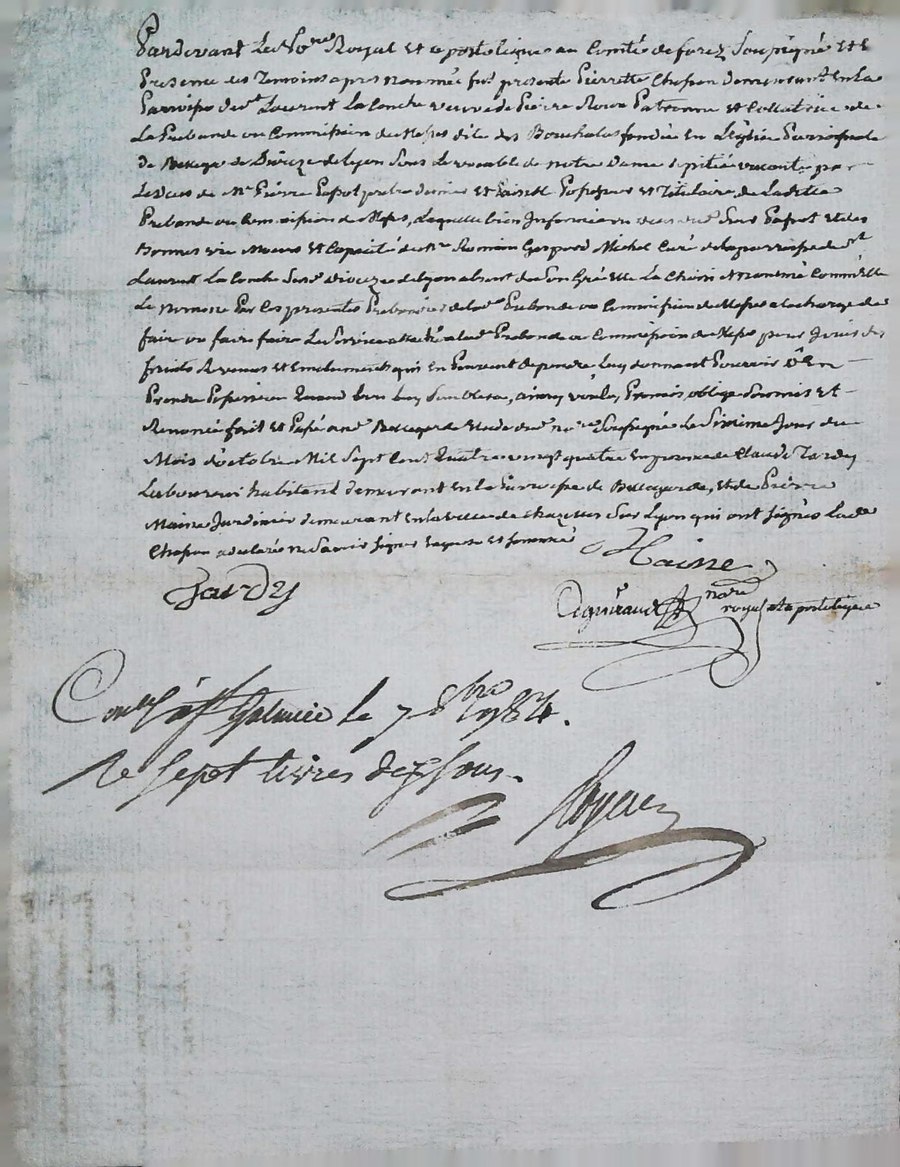 Pardevant Le No.re Royal Et apostolique au Comté de forez Soussigné Et E
Presence des Temoins apres nommés fut presente Pierrette Chapon demeurant En La
Parroisse de S.t Laurent La Conche veuve de Pierre Patronne et Collatrice de
La Prebande ou Commission de Messes dite des Bouchalas fondée en L'Eglise Parroissiale
de Bellegarde Diocèze de Lyon Sous Le vocable de notre Dame de pitié vacante par
Le deces de M.re Pierre Papot pretre dernier Et Paisible Possesseur et Titulaire de Ladite
Prebande ou Commission de Messes, Laquelle bien Informée du deces dud. Sieur Papot et des
Bonnes vie Moeurs et Capacité de M.re Romain Gaspard Michel Curé de la parroisse de S.t
Laurent La Conche Susd. Diocèze de Lyon absent de Son Gré Elle La Choisi et nommé Comm'Elle
Le nomme Par Ces presentes Prebandier de lad. Prebande ou Commission de Messes a la charge de
faire ou faire faire Le Service attaché a lad. Prebande ou Commission de Messes pour Jouir des
fruits Revenus et Emoluments qui en Peuvent dependre Luy donnant Pouvoir d'En
Prendre Possession Quand bon Luy Semblera, ainsy voulu, Promis, obligé Soumis et
Renoncé fait et Passé aud. Bellegarde Etude dud. no.re Soussigné Le Sixieme Jour du
Mois d'octobre Mil Sept Cent Quatre vingt quatre En presence de Claude Tardy
Laboureur habitant demeurant en La Parroisse de Bellegarde, et de Pierre
Maine Jardinier demeurant en la ville de Chazelles Sur Lyon qui ont Signés Lad.
Chapon a declaré ne Savoir Signer Enquise et Sommée
Maine
Tardy
no.re
royal et apostolique
Con.lé à S.t Galmier le 7 8.bre 1784.
Re Sept livres dix sous.